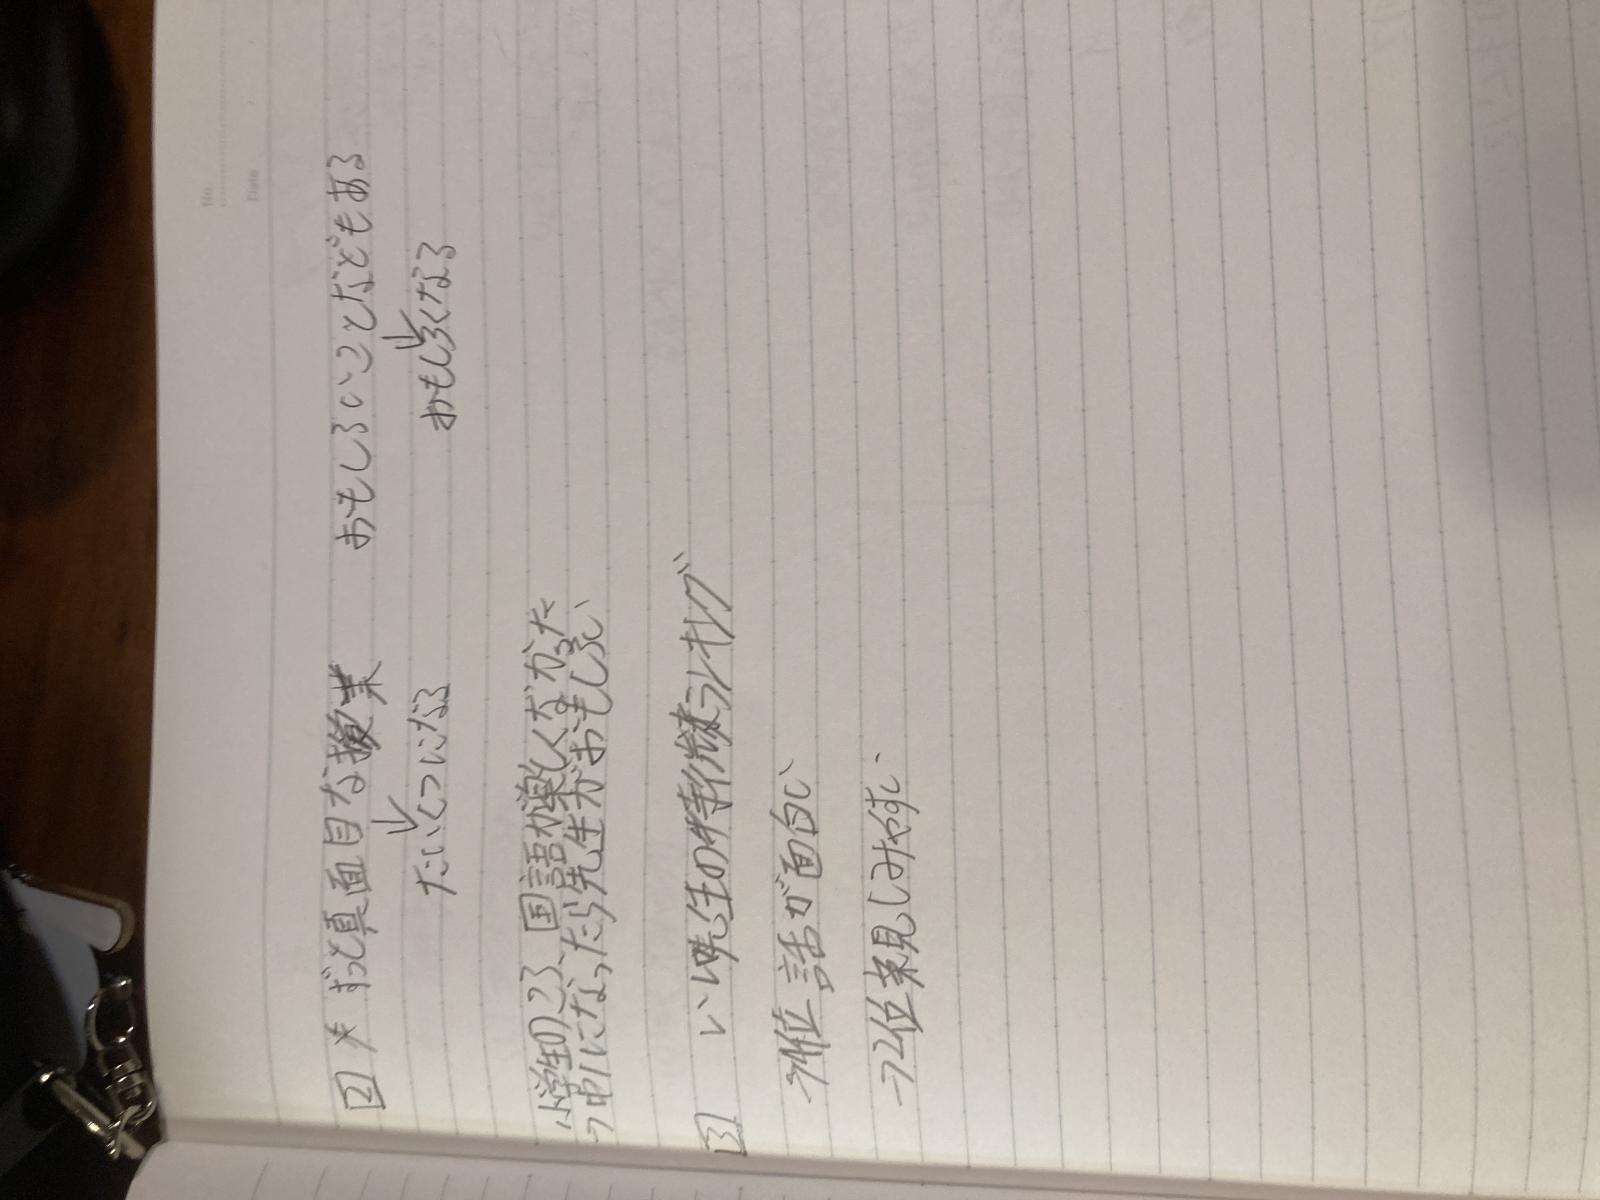 No.
Date
2 * ずっと真面目な授業 おもしろいことなどもある
↓ ↓
たいくつになる おもしろくなる
小学生のころ、国語が楽しくなかった
→中1になったら先生がおもしろい
3 いい先生の特徴ランキング
→1位 話が面白い
→2位 親しみやすい